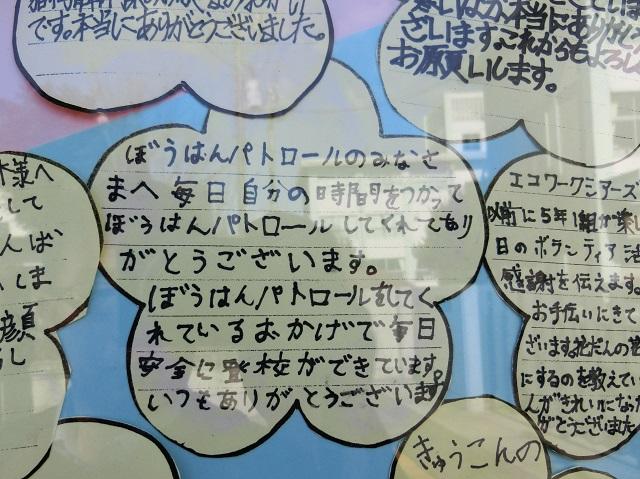 です。本当にありがとうございました。
本当にありがとう
ざいます。これからもよろし
お願いします。
ぼうはんパトロールのみなさ
まへ 毎日自分の時間をつかって
ぼうはんパトロールしてくれてあり
がとうございます。
ぼうはんパトロールをしてく
れているおかげで毎日
安全に登校ができています。
いつもありがとうございます。
様へ
して
んば
しま
顔
エコワークシアーズ
以前に5年1組が楽し
日のボランティア活
感謝を伝えます。
お手伝いにきて
ざいます。花だんの
にするのを教えてい
んがきれいになっ
がとうございました
きゅうこんの